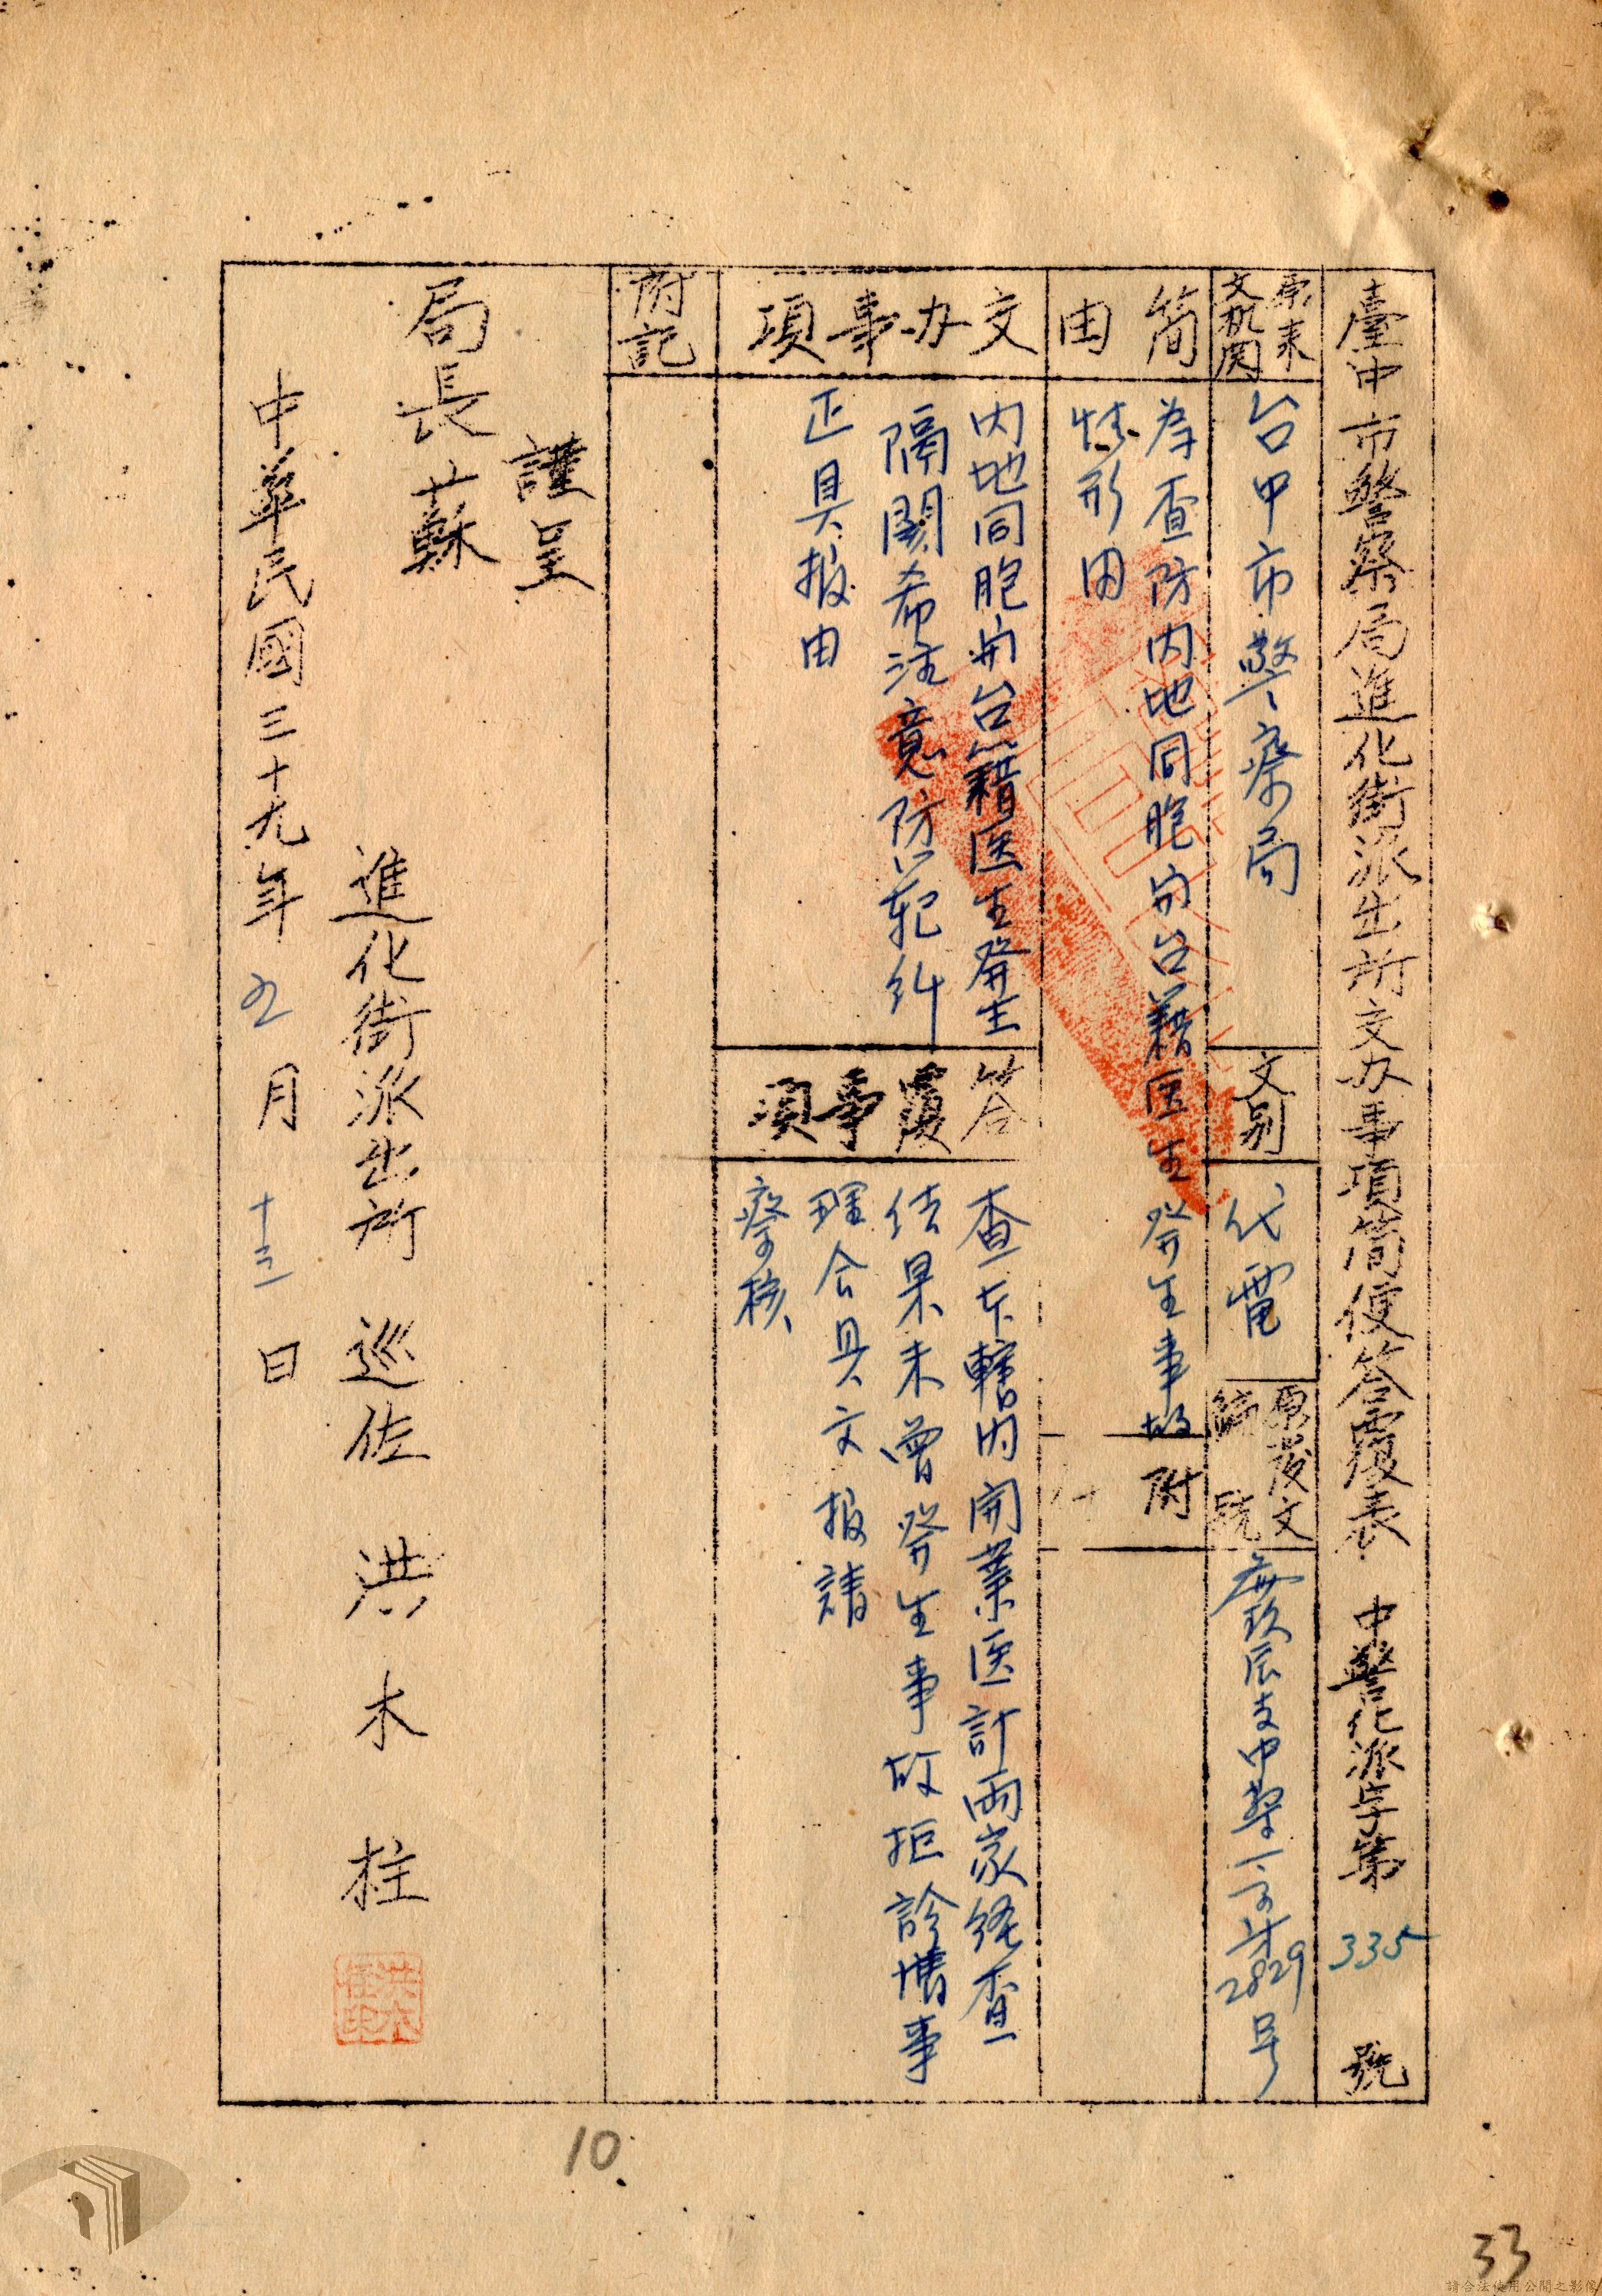 臺中市警察局進化街派出所交办事項简便答覆表 中警化派字第 335 號
原来
文机関
台中市警察局
文别
代電
原發文
號
辰支中警一字計2829号
简由
為查防内地同胞与台籍医生發生事故
情形由
附
交办事項
内地同胞与台籍医生發生
隔閡希注意防範糾
正具报由
答覆事項
查本轄内開業医計両家經查
结果未曾發生事故拒診情事
理合具文报請
察核
附記
謹呈
局長蘇
進化街派出所 巡佐 洪木柱
中華民國三十九年五月十三日
10
33
請合法使用公開之影像